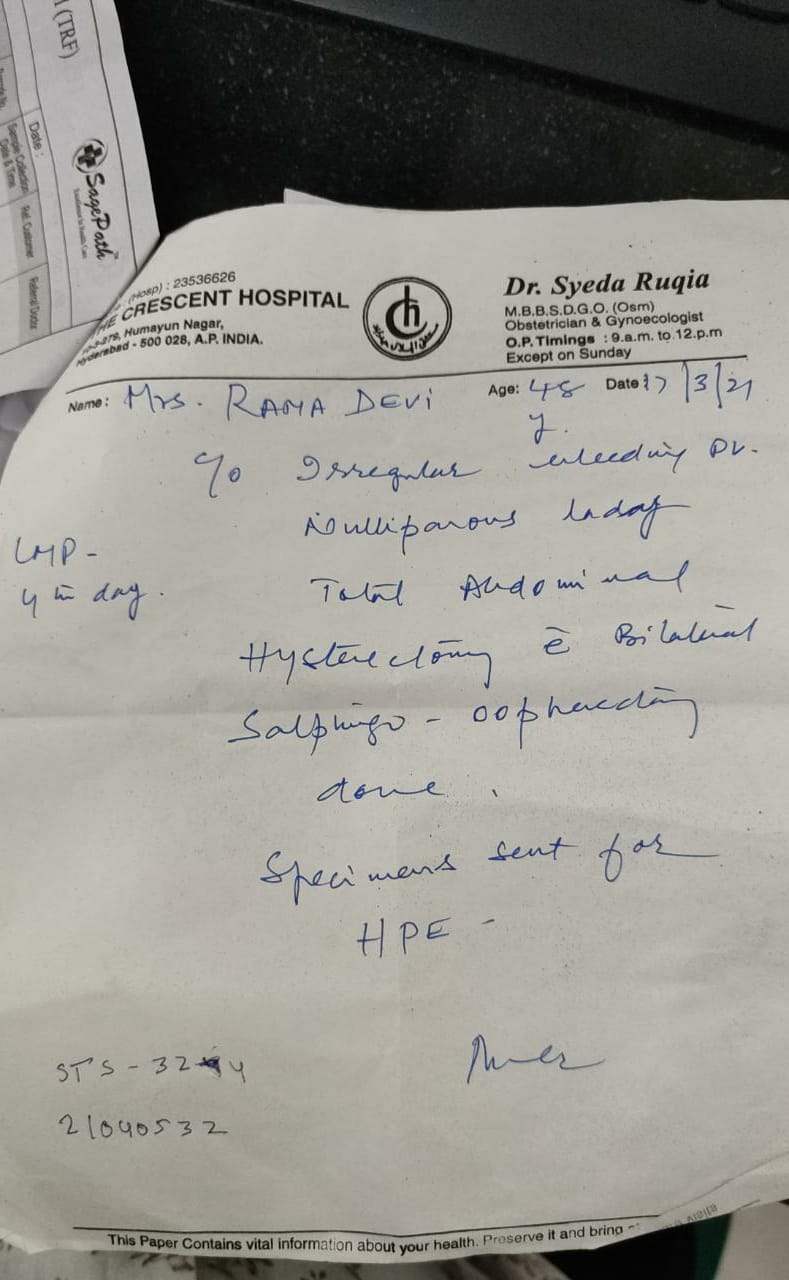 (TRF)
SagePath
Date :
Sample Collection
Date & Time
Ref. Customer
Referral Doctor
(Hosp) : 23536626
CRESCENT HOSPITAL
Humayun Nagar,
Hyderabad - 500 028, A.P. INDIA.
Dr. Syeda Ruqia
M.B.B.S.D.G.O. (Osm)
Obstetrician & Gynoecologist
O.P. Timings : 9.a.m. to 12.p.m
Except on Sunday
Name : Mrs. RAMA DEVI Age: 48 y. Date 17/3/21
c/o Irregular bleeding PV.
Nulliparous lady
LMP -
4th day.
Total Abdominal
Hysterectomy c̄ Bilateral
Salphingo - oophrectomy
done.
Specimens sent for
HPE -
STS - 32 4
21040532
This Paper Contains vital information about your health. Preserve it and bring